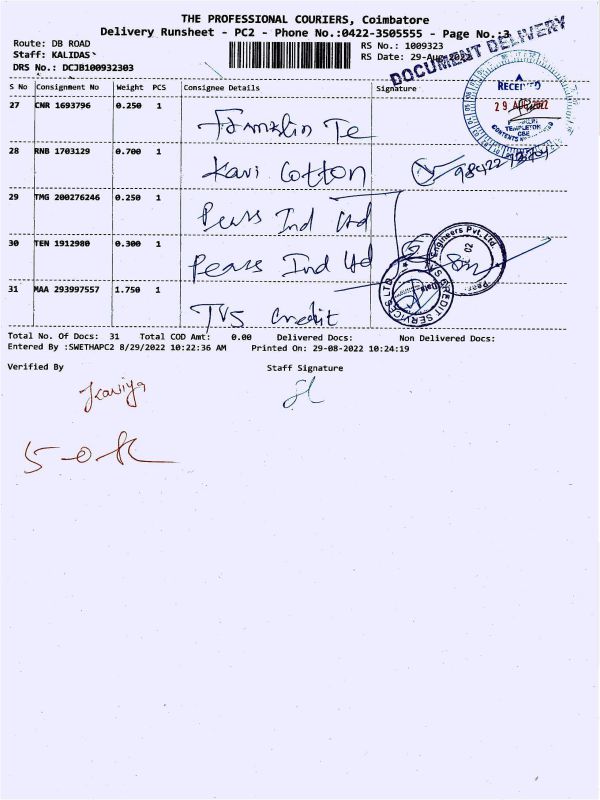 THE PROFESSIONAL COURIERS, Coimbatore
Delivery Runsheet - PC2 - Phone No.:0422-3505555 - Page No.:3
DOCUMENT DELIVERY
Route: DB ROAD
Staff: KALIDAS
DRS No.: DCJB100932303
RS No.: 1009323
RS Date: 29-Aug-2022
S No Consignment No Weight PCS Consignee Details Signature
RECEIVED
29 AUG 2022
TEMPLETON
CBE
27 CNR 1693796 0.250 1 Franklin Te
28 RNB 1703129 0.700 1 Kavi Cotton
29 TMG 200276246 0.250 1 Pears Ind Ltd
30 TEN 1912980 0.300 1 Pears Ind Ltd
Engineers Pvt. Ltd.
02
31 MAA 293997557 1.750 1 TVS Credit
TVS CREDIT SERVICES LTD
Total No. Of Docs: 31 Total COD Amt: 0.00 Delivered Docs: Non Delivered Docs:
Entered By :SWETHAPC2 8/29/2022 10:22:36 AM Printed On: 29-08-2022 10:24:19
Verified By Staff Signature
Kaviya